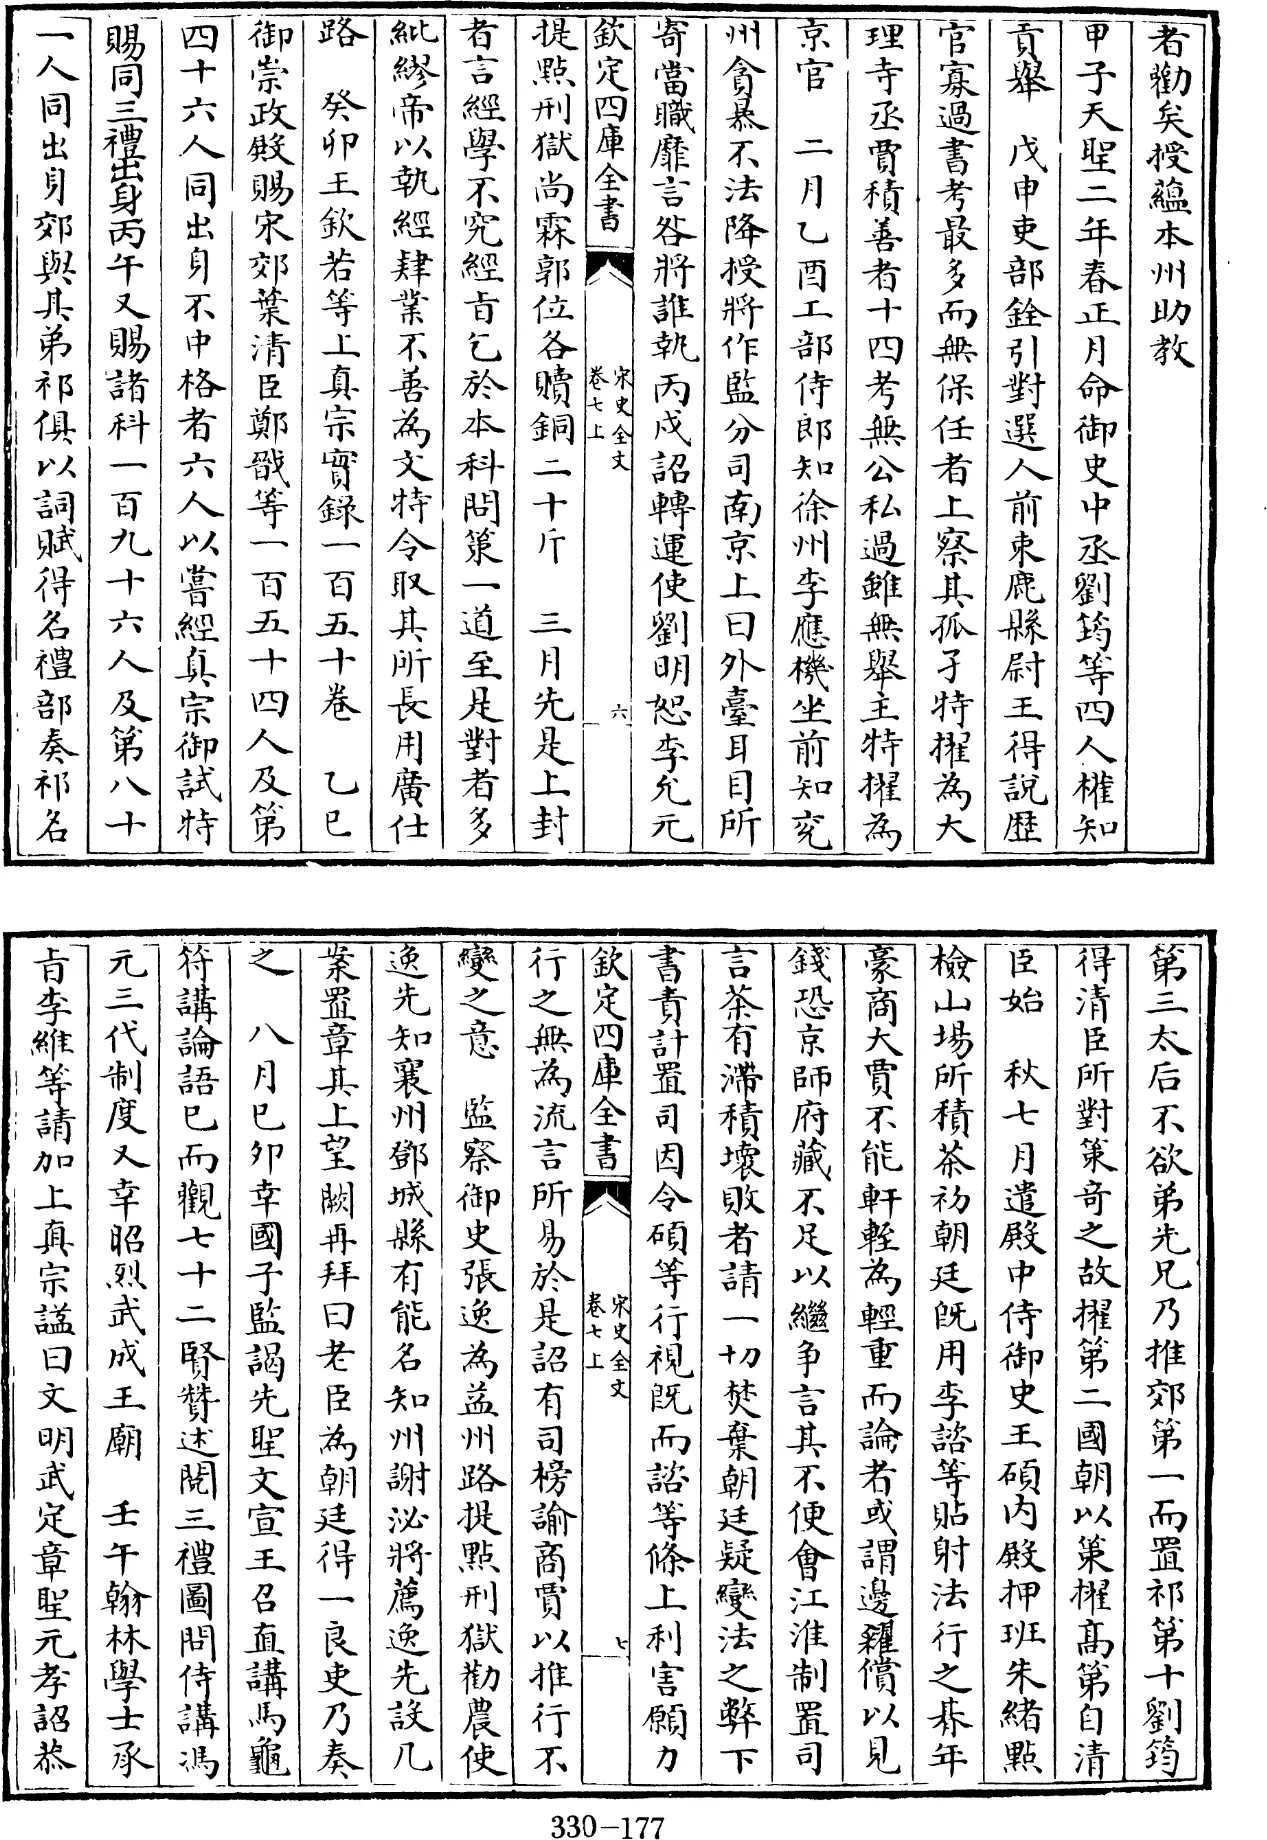 者勸矣授蘊本州助教
甲子天聖二年春正月命御史中丞劉筠等四人權知
貢舉　戊申吏部銓引對選人前束鹿縣尉王得說歴
官寡過書考最多而無保任者上察其孤孑特擢為大
理寺丞賈積善者十四考無公私過雖無舉主特擢為
京官　二月乙酉工部侍郎知徐州李應機坐前知兖
州貪暴不法降授將作監分司南京上曰外臺耳目所
寄當職靡言咎將誰執丙戌詔轉運使劉明恕李允元
欽定四庫全書
宋史全文
卷七上
六
提點刑獄尚霖郭位各贖銅二十斤　三月先是上封
者言經學不究經旨乞於本科問策一道至是對者多
紕繆帝以執經肄業不善為文特令取其所長用廣仕
路　癸卯王欽若等上真宗實録一百五十卷　乙巳
御崇政殿賜宋郊葉清臣鄭戩等一百五十四人及第
四十六人同出身不中格者六人以嘗經真宗御試特
賜同三禮出身丙午又賜諸科一百九十六人及第八十
一人同出身郊與其弟祁俱以詞賦得名禮部奏祁名
第三太后不欲弟先兄乃推郊第一而置祁第十劉筠
得清臣所對策竒之故擢第二國朝以策擢高第自清
臣始　秋七月遣殿中侍御史王碩内殿押班朱緒點
檢山場所積茶初朝廷既用李諮等貼射法行之朞年
豪商大賈不能軒輊為輕重而論者或謂邊糴償以見
錢恐京師府藏不足以繼争言其不便會江淮制置司
言茶有滯積壞敗者請一切焚棄朝廷疑變法之弊下
書責計置司因令碩等行視既而諮等條上利害願力
欽定四庫全書
宋史全文
卷七上
七
行之無為流言所易於是詔有司榜諭商賈以推行不
變之意　監察御史張逸為益州路提點刑獄勸農使
逸先知襄州鄧城縣有能名知州謝泌將薦逸先設几
案置章其上望闕再拜曰老臣為朝廷得一良吏乃奏
之　八月己卯幸國子監謁先聖文宣王召直講馬龜
符講論語已而觀七十二賢贊述閲三禮圖問侍講馮
元三代制度又幸昭烈武成王廟　壬午翰林學士承
旨李維等請加上真宗諡曰文明武定章聖元孝詔恭
330-177